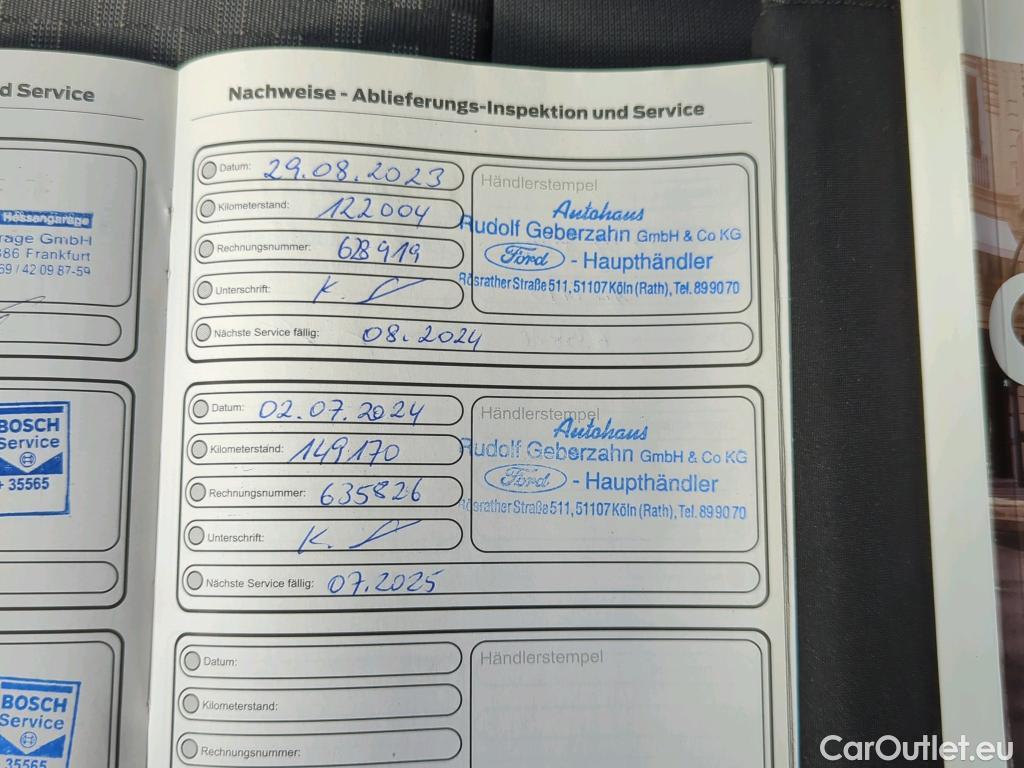 d Service
Hessengarage
rage GmbH
386 Frankfurt
69 / 42 09 87-59
BOSCH
Service
35565
BOSCH
Service
35565
Nachweise - Ablieferungs-Inspektion und Service
Datum: 29.08.2023
Kilometerstand: 122004
Rechnungsnummer: 628919
Unterschrift:
Nächste Service fällig: 08.2024
Händlerstempel
Autohaus
Rudolf Geberzahn GmbH & Co KG
Ford - Haupthändler
Rösrather Straße 511, 51107 Köln (Rath), Tel. 89 90 70
Datum: 02.07.2024
Kilometerstand: 149170
Rechnungsnummer: 635826
Unterschrift:
Nächste Service fällig: 07.2025
Händlerstempel
Autohaus
Rudolf Geberzahn GmbH & Co KG
Ford - Haupthändler
Rösrather Straße 511, 51107 Köln (Rath), Tel. 89 90 70
Datum:
Kilometerstand:
Rechnungsnummer:
Händlerstempel
CarOutlet.eu